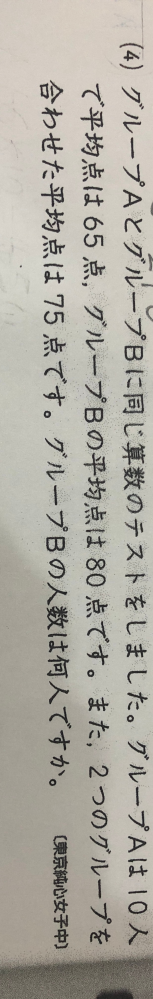 (4) グループAとグループBに同じ算数のテストをしました。グループAは10人
で平均点は65点，グループBの平均点は80点です。また，2つのグループを
合わせた平均点は75点です。グループBの人数は何人ですか。
〔東京純心女子中〕